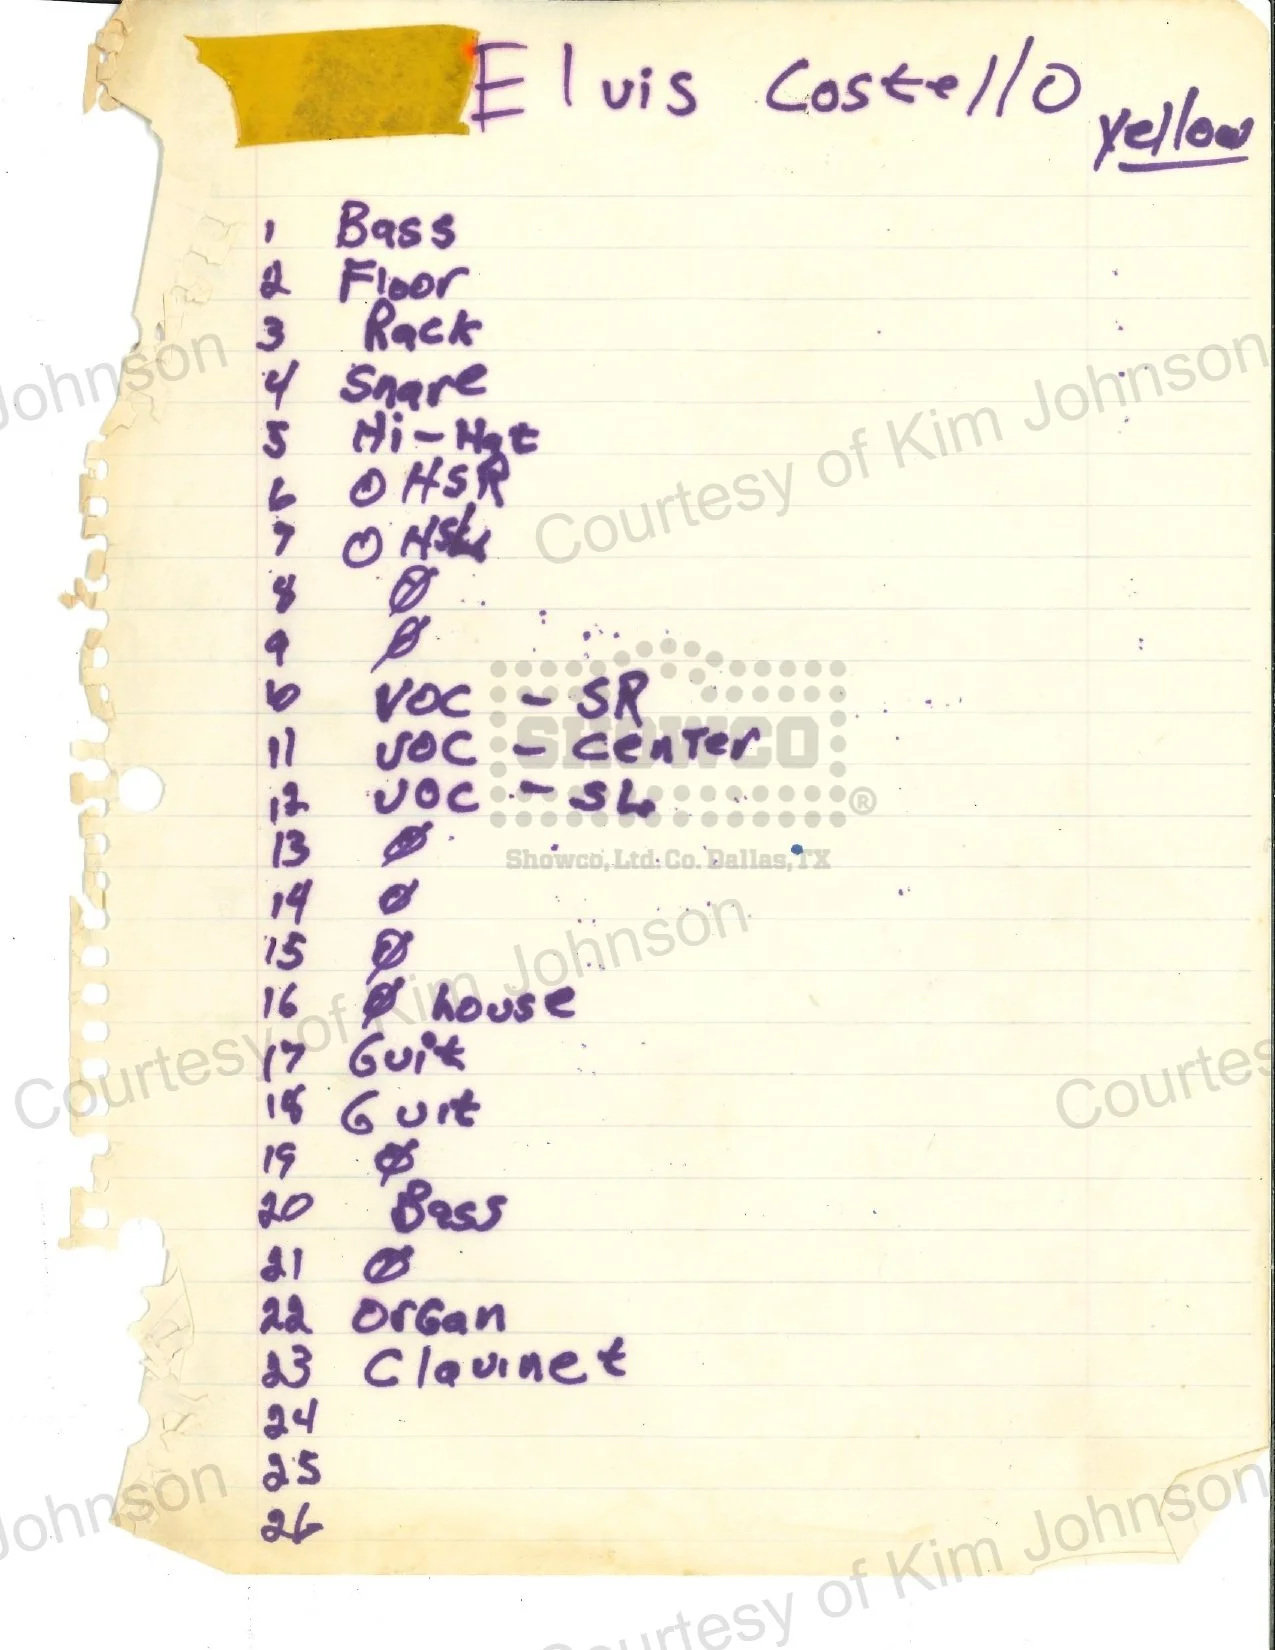 Elvis Costello
yellow
1 Bass
2 Floor
3 Rack
4 Snare
5 Hi-Hat
6 O HSR
7 O HSL
8 Ø
9 Ø
10 VOC - SR
11 VOC - center
12 VOC - SL
13 Ø
14 Ø
15 Ø
16 Ø house
17 Guit
18 Guit
19 Ø
20 Bass
21 Ø
22 Organ
23 Clavinet
24
25
26
SHOWCO
®
Showco, Ltd. Co. Dallas, TX
Johnson
Courtesy of Kim Johnson
Courtesy of Kim Johnson
Courtes
Johnson
Courtesy of Kim Johnson